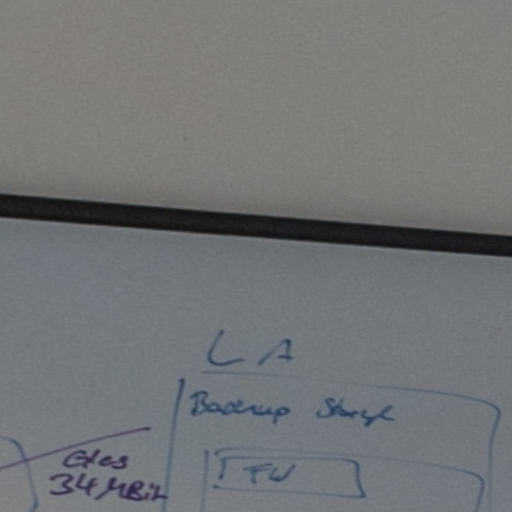 LA
Backup Storage
FW
Glas
34 MBit